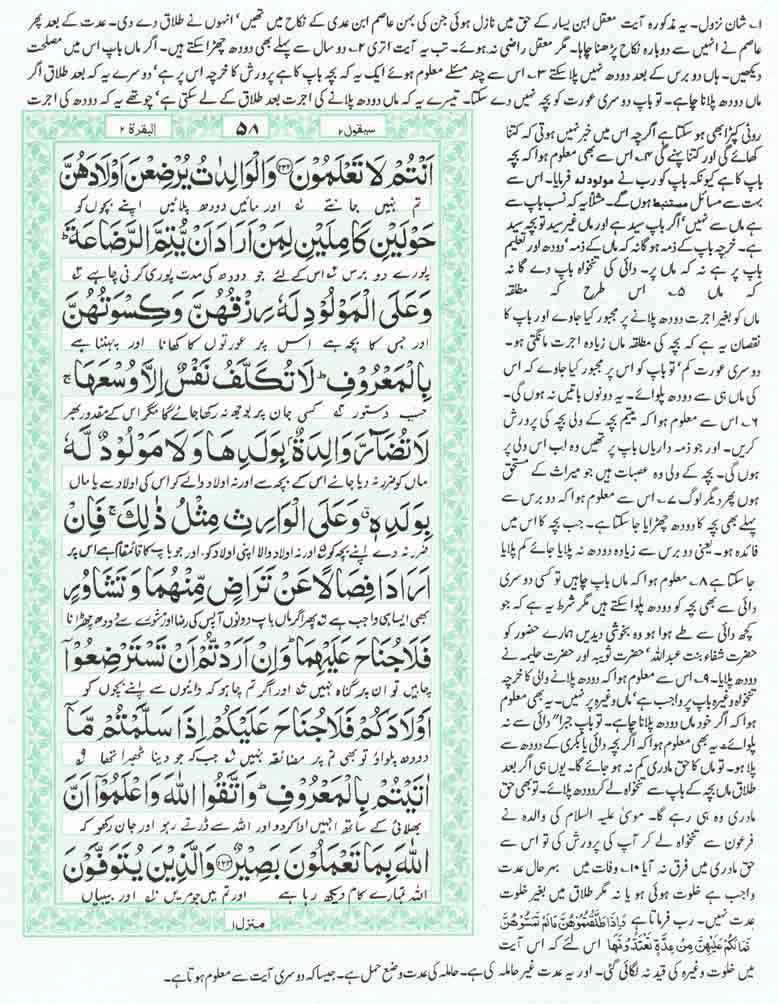 ۱؎ شان نزول۔ یہ مذکورہ آیت معقل ابن یسار کے حق میں نازل ہوئی جن کی بہن عاصم ابن عدی کے نکاح میں تھیں' انہوں نے طلاق دے دی۔ عدت کے بعد پھر
عاصم نے انہیں سے دوبارہ نکاح پڑھنا چاہا۔ مگر معقل راضی نہ ہوئے۔ تب یہ آیت اتری ۲؎ دو سال سے پہلے بھی دودھ چھڑا سکتے ہیں۔ اگر ماں باپ اس میں مصلحت
دیکھیں۔ ہاں دو برس کے بعد دودھ نہیں پلا سکتے ۳؎ اس سے چند مسئلے معلوم ہوئے ایک یہ کہ بچہ باپ کا ہے پرورش کا خرچہ اس پر ہے' دوسرے یہ کہ بعد طلاق اگر
ماں دودھ پلانا چاہے۔ تو باپ دوسری عورت کو بچہ نہیں دے سکتا۔ تیسرے یہ کہ ماں دودھ پلانے کی اجرت بعد طلاق کے لے سکتی ہے' چوتھے یہ کہ دودھ کی اجرت
روٹی کپڑا بھی ہو سکتا ہے اگرچہ اس میں خبر نہیں ہوتی کہ کتنا
کھائے گی اور کتنا پہنے گی ۴؎ اس سے بھی معلوم ہوا کہ بچہ
باپ کا ہے کیونکہ باپ کو رب نے مولود لہ فرمایا۔ اس سے
بہت سے مسائل مستنبط ہوں گے۔ مثلاً یہ کہ نسب باپ سے
ہے ماں سے نہیں' اگر باپ سید ہے اور ماں غیر سید تو بچہ سید
ہے۔ خرچہ باپ کے ذمہ ہو گا نہ کہ ماں کے ذمہ' دودھ اور تعلیم
باپ پر ہے نہ کہ ماں پر۔ دائی کی تنخواہ باپ دے گا نہ
کہ ماں ۵؎ اس طرح کہ مطلقہ
ماں کو بغیر اجرت دودھ پلانے پر مجبور کیا جاوے اور باپ کا
نقصان یہ ہے کہ بچہ کی مطلقہ ماں زیادہ اجرت مانگتی ہو۔
دوسری عورت کم' تو باپ کو اس پر مجبور کیا جاوے کہ اس
کی ماں ہی سے دودھ پلوائے۔ یہ دونوں باتیں نہ ہوں گی۔
۶؎ اس سے معلوم ہوا کہ یتیم بچہ کے ولی بچہ کی پرورش
کریں۔ اور جو ذمہ داریاں باپ پر تھیں وہ اب اس ولی پر
ہوں گی۔ بچہ کے ولی وہ عصبات ہیں جو میراث کے مستحق
ہوں پھر دیگر لوگ ۷؎ اس سے معلوم ہوا کہ دو برس سے
پہلے بھی بچہ کا دودھ چھڑایا جا سکتا ہے۔ جب بچہ کا اس میں
فائدہ ہو۔ یعنی دو برس سے زیادہ دودھ نہ پلایا جائے کم پلایا
جا سکتا ہے ۸؎ معلوم ہوا کہ ماں باپ چاہیں تو کسی دوسری
دائی سے بھی بچہ کو دودھ پلوا سکتے ہیں مگر شرط یہ ہے کہ جو
کچھ دائی سے طے ہوا ہو وہ بخوشی دیدیں ہمارے حضور کو
حضرت شفاء بنت عبداللہ' حضرت ثویبہ اور حضرت حلیمہ نے
دودھ پلایا۔ ۹؎ اس سے معلوم ہوا کہ دودھ پلانے والی کا خرچہ
تنخواہ وغیرہ باپ پر واجب ہے' ماں وغیرہ پر نہیں۔ یہ بھی معلوم
ہوا کہ اگر خود ماں دودھ پلانا چاہے۔ تو باپ جبراً دائی سے نہ
پلوائے۔ یہ بھی معلوم ہوا کہ اگر بچہ دائی یا بکری کے دودھ سے
پلا ہو۔ تو ماں کا حق مادری کم نہ ہو جائے گا۔ یوں ہی اگر بعد
طلاق ماں بچہ کے باپ سے تنخواہ لے کر دودھ پلائے۔ تو بھی حق
مادری وہ ہی رہے گا۔ موسیٰ علیہ السلام کی والدہ نے
فرعون سے تنخواہ لے کر آپ کی پرورش کی تو اس سے
حق مادری میں فرق نہ آیا ۱۰؎ وفات میں بہر حال عدت
واجب ہے خلوت ہوئی ہو یا نہ مگر طلاق میں بغیر خلوت
عدت نہیں۔ رب فرماتا ہے
فَمَا لَكُمْ عَلَيْهِنَّ مِنْ عِدَّةٍ تَعْتَدُّونَهَا اس لئے کہ اس آیت
میں خلوت وغیرہ کی قید نہ لگائی گئی۔ اور یہ عدت غیر حاملہ کی ہے۔ حاملہ کی عدت وضع حمل ہے۔ جیسا کہ دوسری آیت سے معلوم ہوتا ہے۔
سیقول ۲ ۵۸ البقرۃ ۲
اَنْتُمْ لَا تَعْلَمُوْنَ ﴿۲۳۲﴾ وَالْوَالِدٰتُ يُرْضِعْنَ اَوْلَادَهُنَّ
تم نہیں جانتے اور مائیں دودھ پلائیں اپنے بچوں کو
حَوْلَيْنِ كَامِلَيْنِ لِمَنْ اَرَادَ اَنْ يُّتِمَّ الرَّضَاعَةَ ؕ
پورے دو برس اس کے لئے جو دودھ کی مدت پوری کرنی چاہے
وَعَلَى الْمَوْلُوْدِ لَهٗ رِزْقُهُنَّ وَكِسْوَتُهُنَّ
اور جس کا بچہ ہے اس پر عورتوں کا کھانا اور پہننا ہے
بِالْمَعْرُوْفِ ؕ لَا تُكَلَّفُ نَفْسٌ اِلَّا وُسْعَهَا ۚ
حسب دستور کسی جان پر بوجھ نہ رکھا جائے گا مگر اس کے مقدور بھر
لَا تُضَآرَّ وَالِدَةٌۢ بِوَلَدِهَا وَلَا مَوْلُوْدٌ لَّهٗ
ماں کو ضرر نہ دیا جائے اس کے بچہ سے اور نہ اولاد والے کو اس کی اولاد سے یا ماں
بِوَلَدِهٖ ۗ وَعَلَى الْوَارِثِ مِثْلُ ذٰلِكَ ۚ فَاِنْ
ضرر نہ دے اپنے بچہ کو اور نہ اولاد والا اپنی اولاد کو۔ اور جو باپ کا قائم مقام ہے اس پر
اَرَادَا فِصَالًا عَنْ تَرَاضٍ مِّنْهُمَا وَتَشَاوُرٍ
بھی ایسا ہی واجب ہے پھر اگر ماں باپ دونوں آپس کی رضا اور مشورے سے دودھ چھڑانا
فَلَا جُنَاحَ عَلَيْهِمَا ؕ وَاِنْ اَرَدْتُّمْ اَنْ تَسْتَرْضِعُوْٓا
چاہیں تو ان پر گناہ نہیں اور اگر تم چاہو کہ دائیوں سے اپنے بچوں کو
اَوْلَادَكُمْ فَلَا جُنَاحَ عَلَيْكُمْ اِذَا سَلَّمْتُمْ مَّآ
دودھ پلواؤ تو بھی تم پر مضائقہ نہیں جب کہ جو دینا ٹھہرا تھا
اٰتَيْتُمْ بِالْمَعْرُوْفِ ؕ وَاتَّقُوا اللّٰهَ وَاعْلَمُوْٓا اَنَّ
بھلائی کے ساتھ انہیں ادا کر دو اور اللہ سے ڈرتے رہو اور جان رکھو کہ
اللّٰهَ بِمَا تَعْمَلُوْنَ بَصِيْرٌ ﴿۲۳۳﴾ وَالَّذِيْنَ يُتَوَفَّوْنَ
اللہ تمہارے کام دیکھ رہا ہے اور تم میں جو مریں اور بیبیاں
منزل ۱